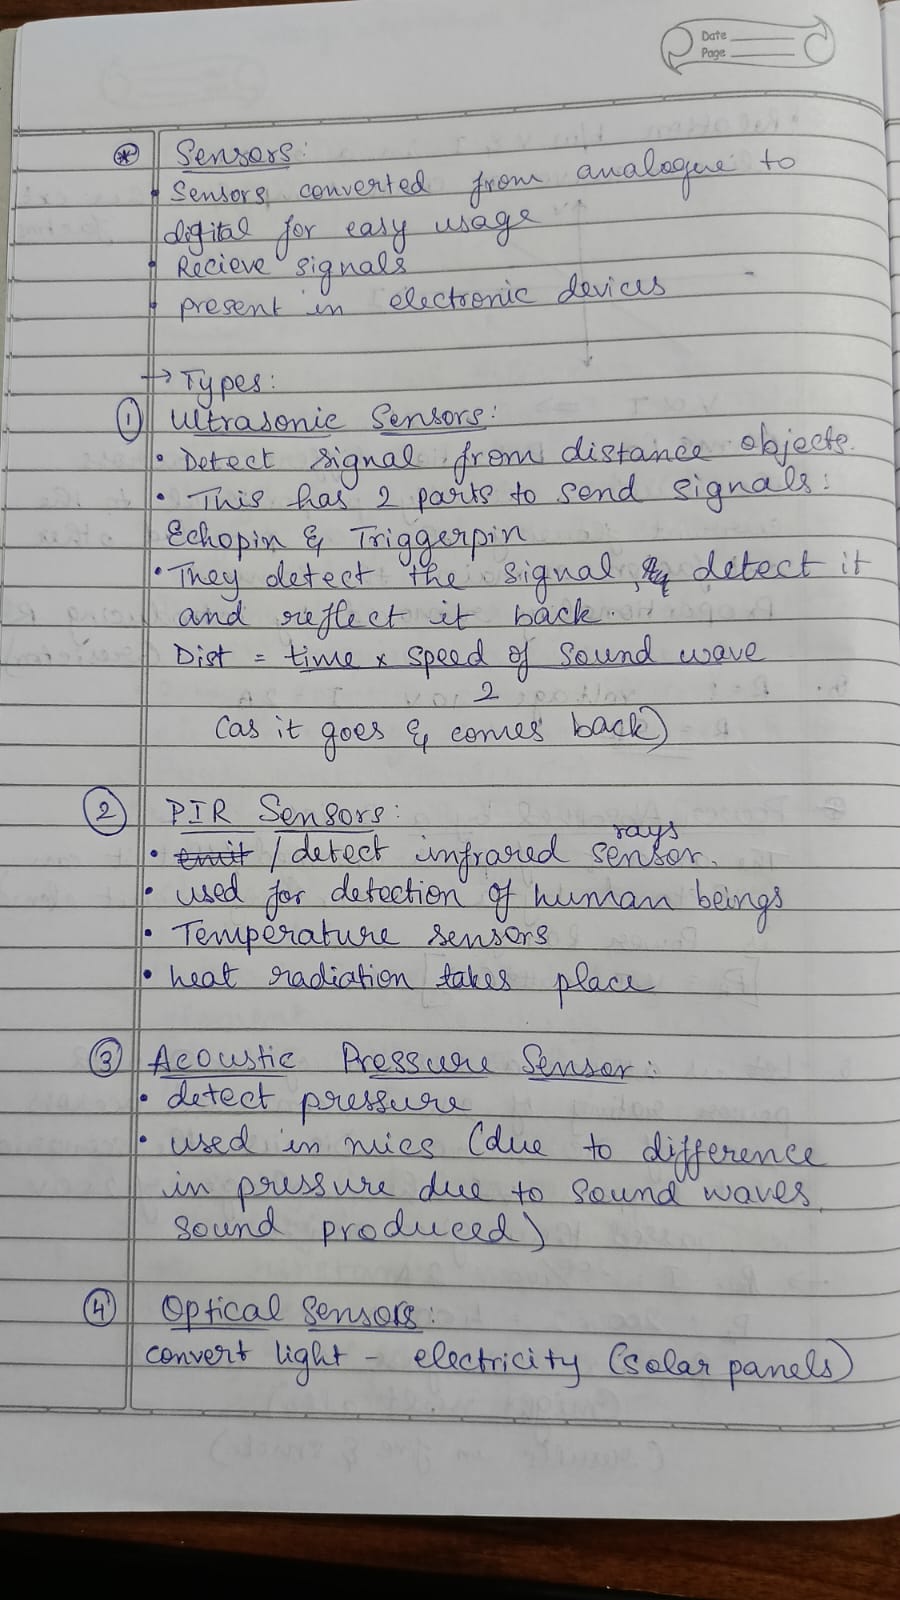 Date
Page
* Sensors:
• Sensors converted from analogue to
digital for easy usage
• Recieve signals
• present in electronic devices
→ Types:
① Ultrasonic Sensors:
• Detect signal from distance objects.
• This has 2 parts to send signals:
Echopin & Triggerpin
• They detect the signal, detect it
and reflect it back.
Dist = time × speed of sound wave
2
(as it goes & comes back)
② PIR Sensors:
rays
• emit / detect infrared sensor.
• used for detection of human beings
• Temperature sensors
• heat radiation takes place
③ Acoustic Pressure Sensor:
• detect pressure
• used in mics (due to difference
in pressure due to sound waves,
sound produced)
④ Optical Sensors:
convert light - electricity (solar panels)